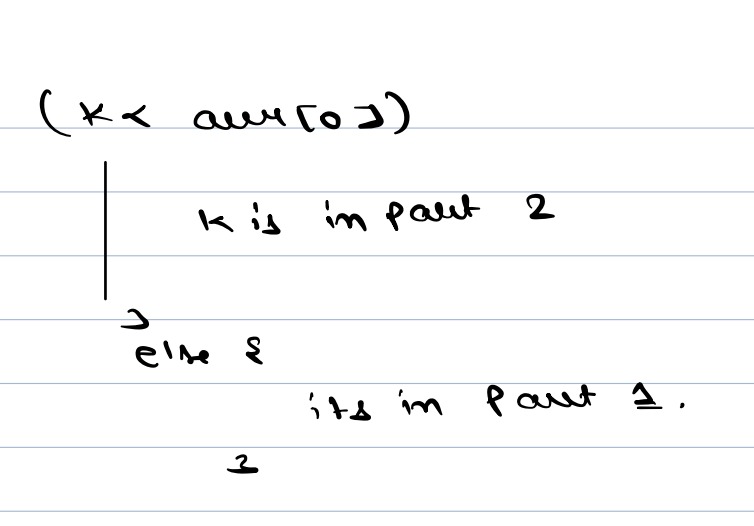 (k < arr[0])
k is in part 2
}
else {
its in part 1.
}